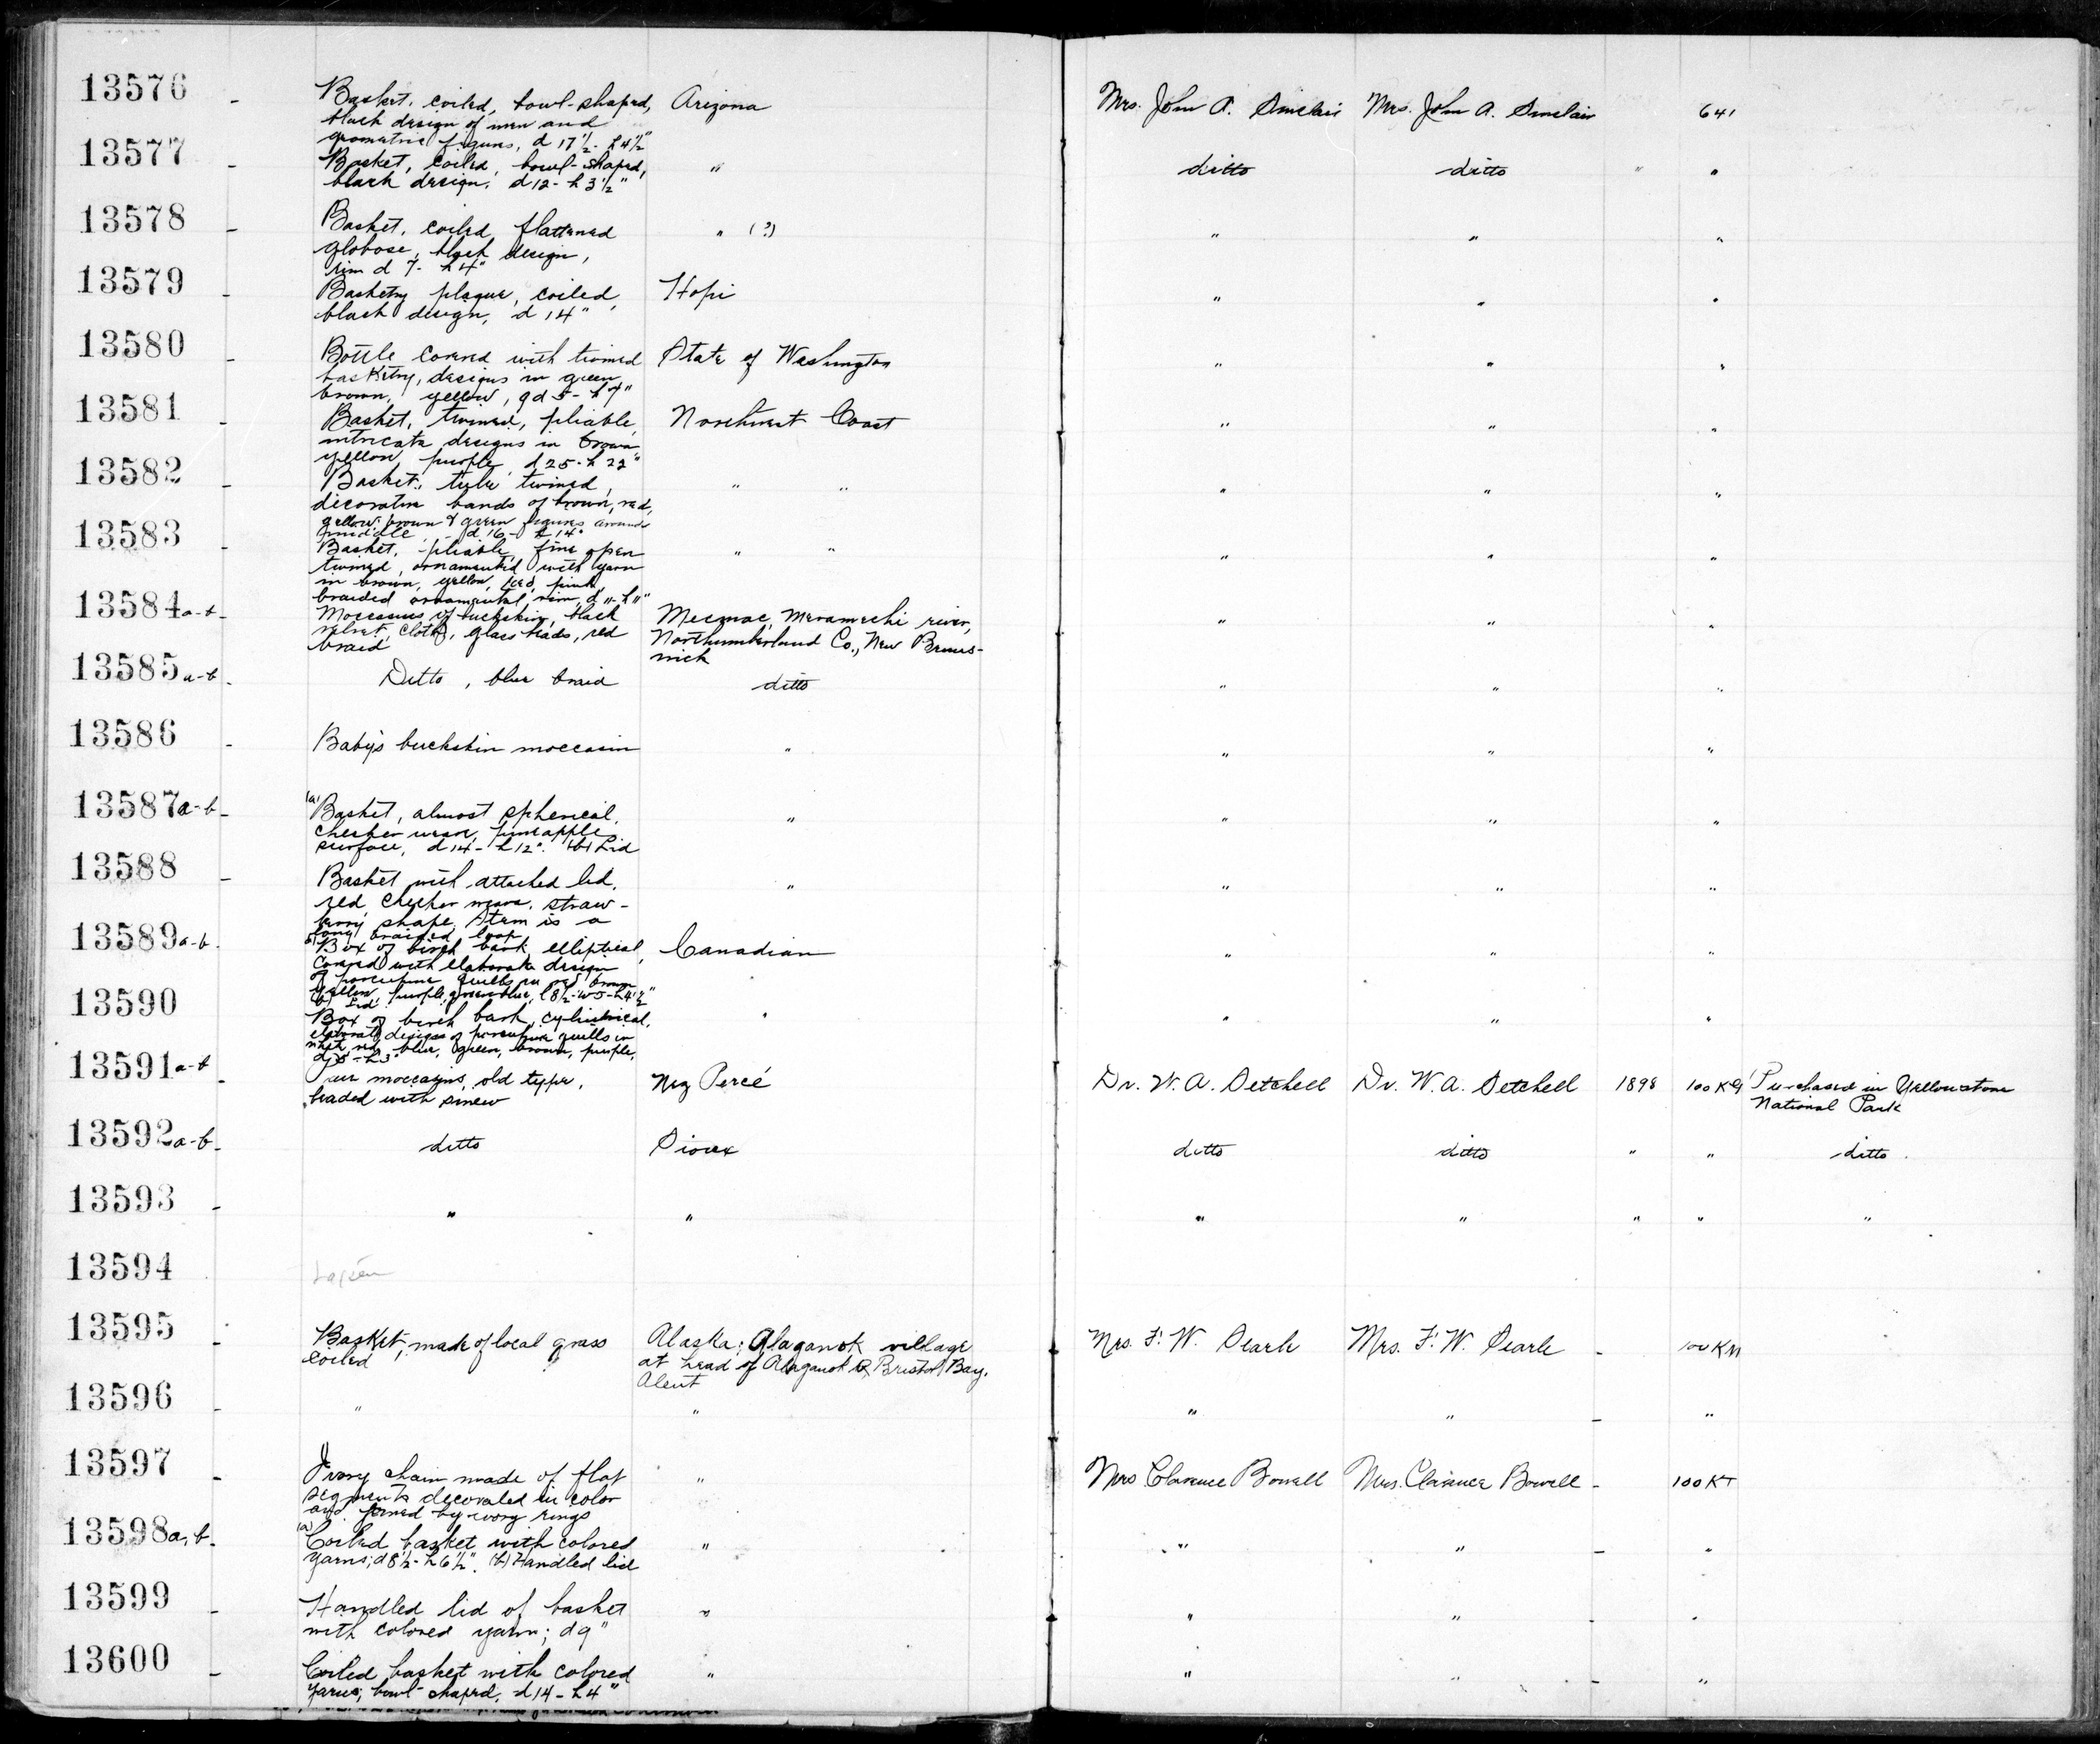 13576 - Basket, coiled, bowl-shaped, Arizona Mrs. John A. Sinclair Mrs. John A. Sinclair 641
black design of men and
geometric figures, d 17½ - h 4½"
13577 - Basket, coiled, bowl-shaped, " ditto ditto " "
black design, d 12 - h 3½"
13578 - Basket, coiled, flattened " (?) " " "
globose, black design,
rim d 7 - h 4"
13579 - Basketry plaque, coiled, Hopi " " "
black design, d 14"
13580 - Bottle covered with twined State of Washington " " "
basketry, designs in green
brown, yellow, gd 5 - h 9"
13581 - Basket, twined, pliable, Northwest Coast " " "
intricate designs in brown
yellow, purple, d 25 - h 22"
13582 - Basket, tule twined, " " " " "
decorative bands of brown, red,
yellow; brown & green figures around
middle, - d 16 - h 14"
13583 - Basket, pliable, fine open " " " " "
twined, ornamented with yarn
in brown, yellow, red, pink,
braided ornamental rim, d 11 - h 11"
13584 a-b - Moccasins of buckskin, black Mecmac, Meramechi river, " " "
velvet, cloth, glass beads, red Northumberland Co., New Bruns-
braid wick
13585 a-b - Ditto, blue braid ditto " " "
13586 - Baby's buckskin moccasin " " " "
13587 a-b - (a) Basket, almost spherical, " " " "
checker weave, pineapple
surface, d 14 - h 12". (b) Lid
13588 - Basket with attached lid, " " " "
red checker weave, straw-
berry shape, stem is a
long braided loop
13589 a-b - Box of birch bark, elliptical, Canadian " " "
covered with elaborate design
of porcupine quills in red, brown
yellow, purple, green, blue, l 8½ - w 5 - h 4½"
(b) Lid
13590 Box of birch bark, cylindrical, " " " "
elaborate designs of porcupine quills in
white, red, blue, green, brown, purple,
h 3"
13591 a-b - Pair moccasins, old type, Nez Percé Dr. W. A. Setchell Dr. W. A. Setchell 1898 100 KG Purchased in Yellowstone
beaded with sinew National Park
13592 a-b - ditto Sioux ditto ditto " " ditto
13593 - " " " " " " "
13594
13595 - Basket, made of local grass Alaska; Alaganok village Mrs. F. W. Searle Mrs. F. W. Searle - 100 KM
coiled at head of Alaganok R, Bristol Bay.
Aleut
13596 - " " " " - "
13597 - Ivory chain made of flat " Mrs Clarence Bowell Mrs. Clarence Bowell - 100 KT
segments decorated in color
and joined by ivory rings
13598 a, b - (a) Coiled basket with colored " " " - "
yarns; d 8½ - h 6½". (b) Handled lid
13599 - Handled lid of basket " " " - "
with colored yarn; d 9"
13600 - Coiled basket with colored " " " - "
yarns; bowl-shaped, d 14 - h 4"